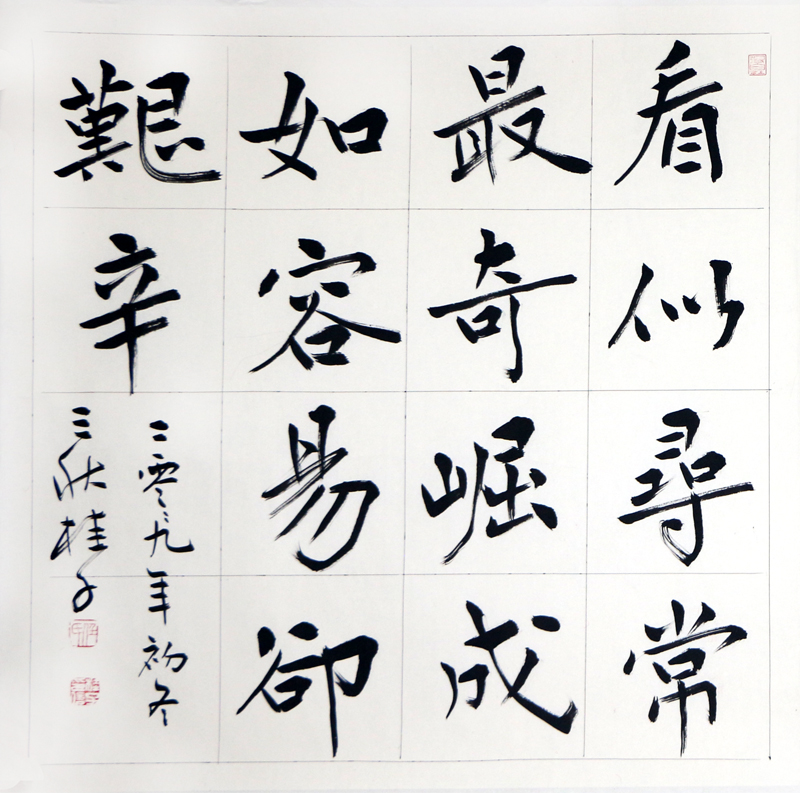 看似尋常
最奇崛成
如容易卻
艱辛
二零々九年初冬
三秋桂子